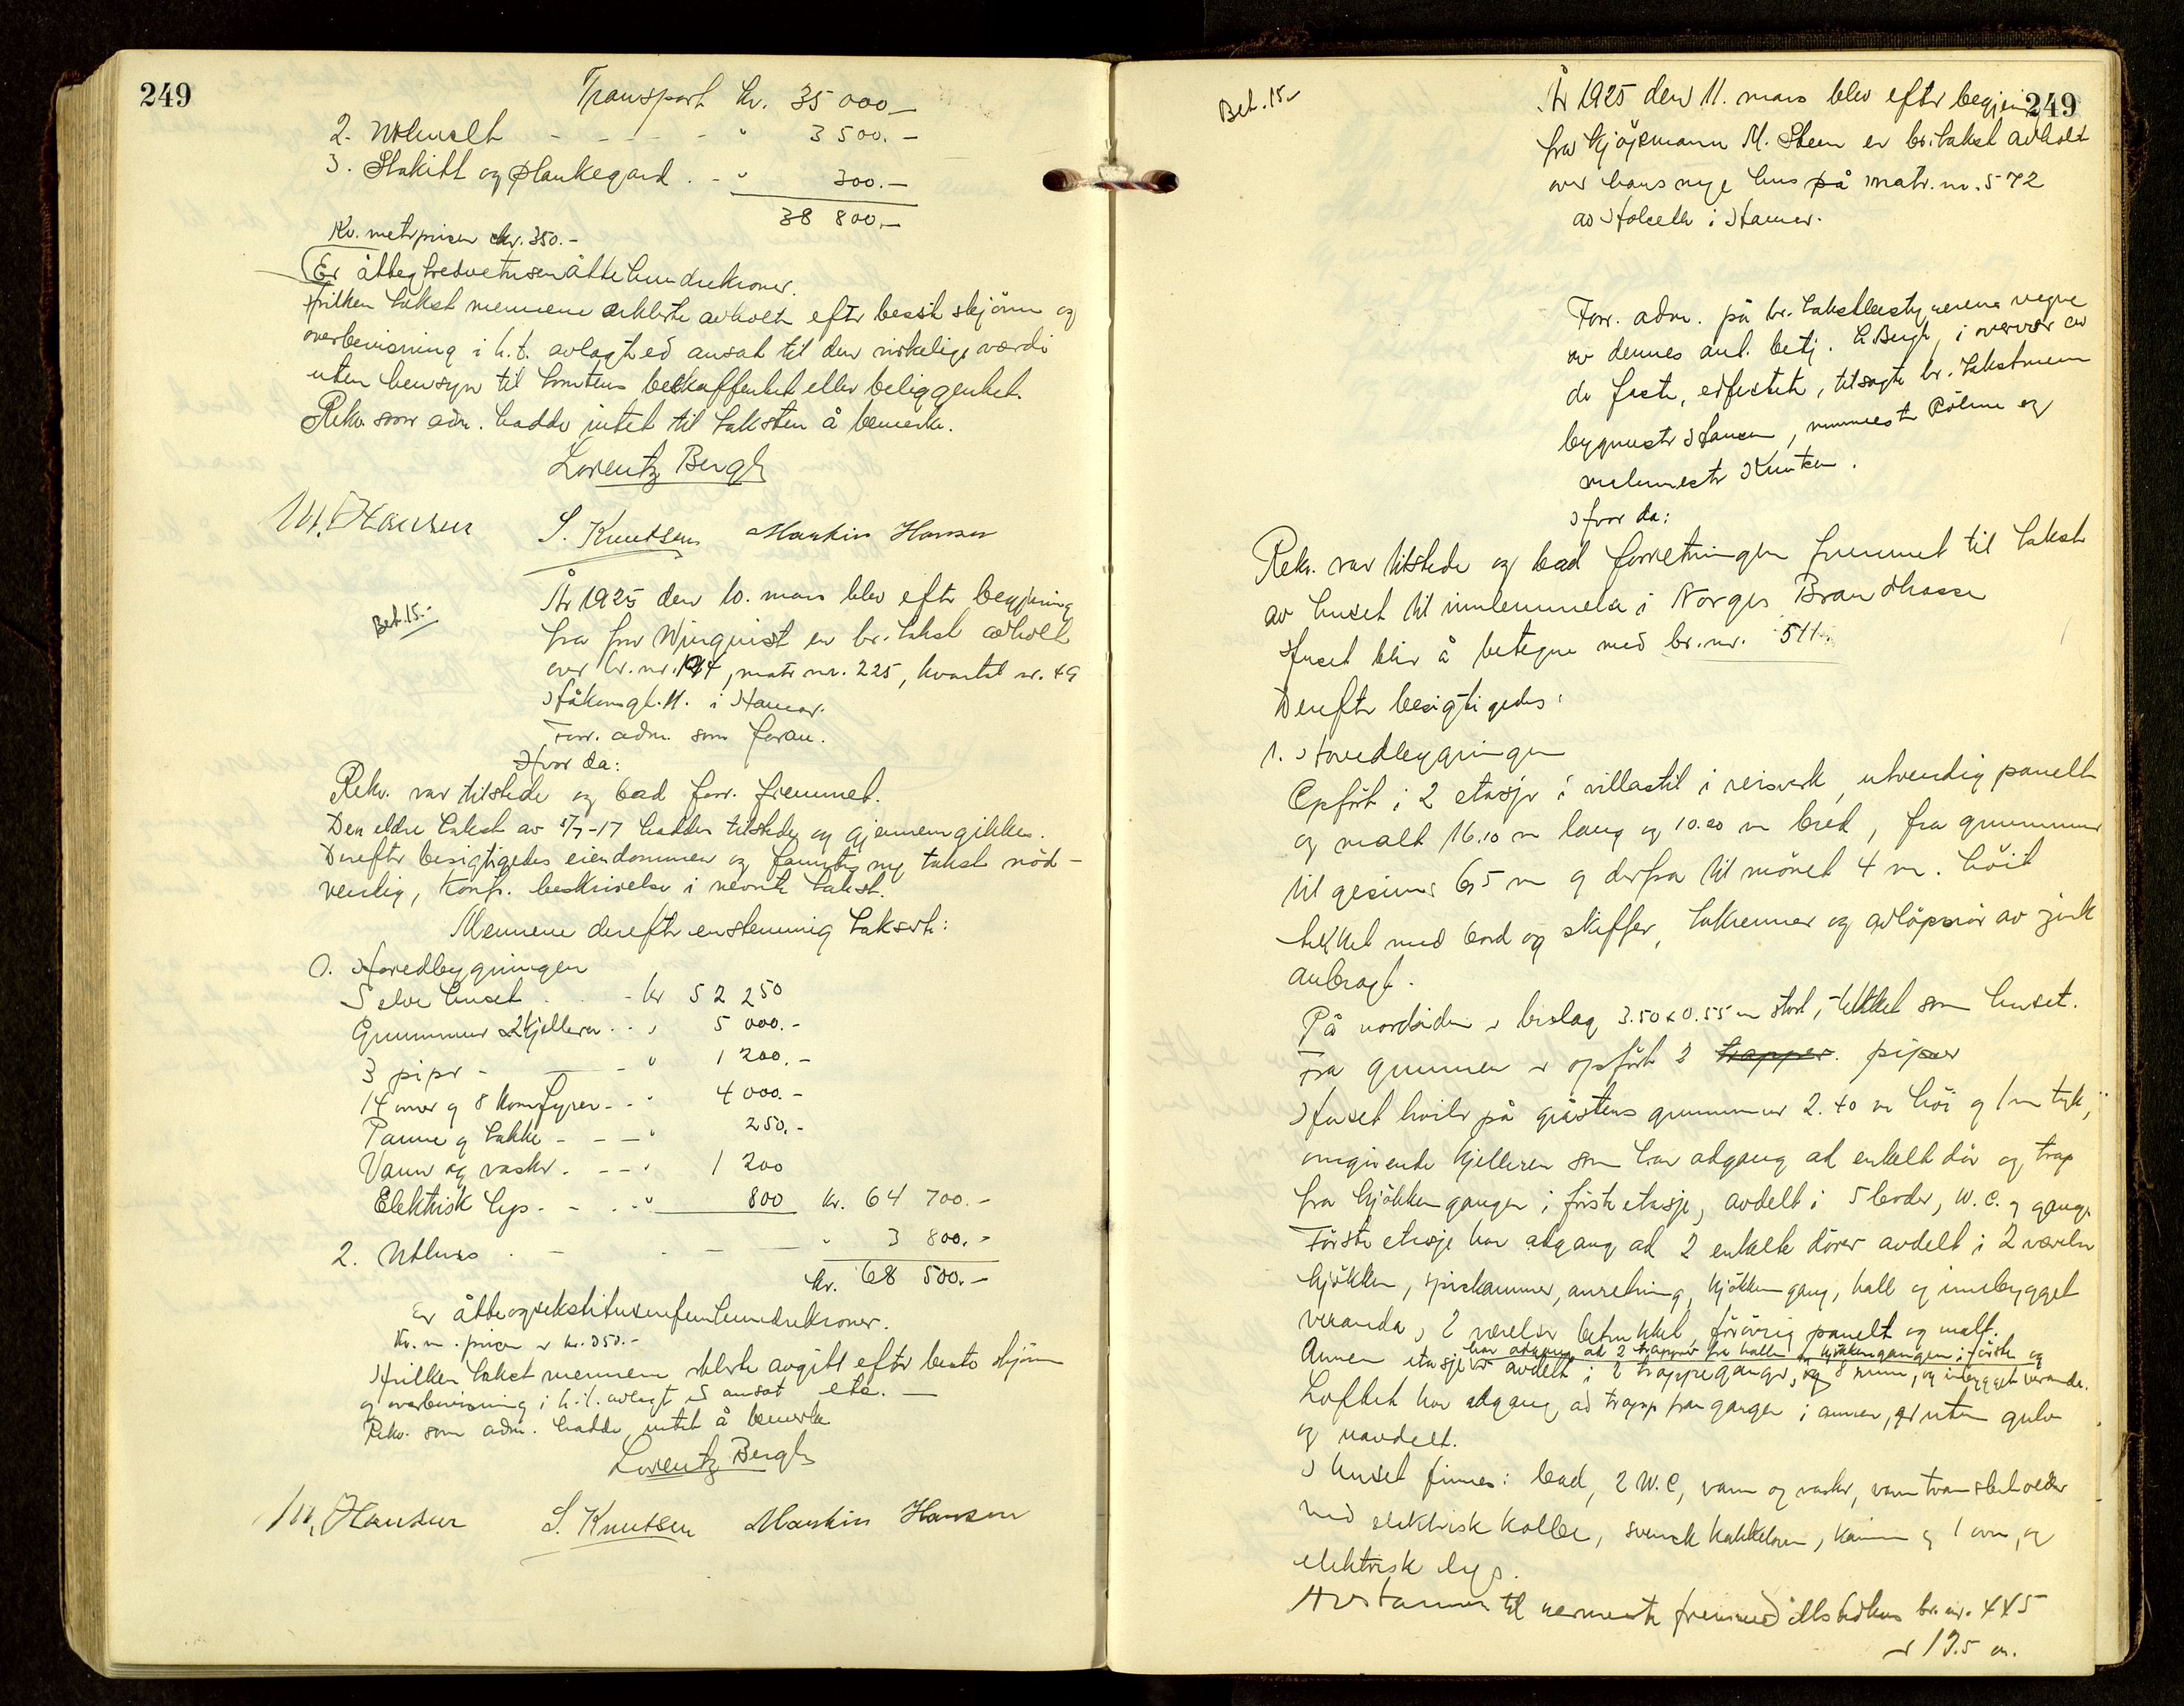 249
Transport kr. 35 000.-
2. Uthuset - - - - " 3 500.-
3. Stakitt og plankegard. - " 300.-
38 800.-
Kv. meterprisen er kr. 350.-
Er åtteogtredvetusenåttehundrekroner.
Hvilken takst mennene erklærte avholdt efter beste skjønn og
overbevisning i h.t. avlagt ed ansat til den virkelige værdi
uten hensyn til tomtens beskaffenhet eller beliggenhet.
Rekv. som adm. hadde intet til taksten å bemerke.
Lorentz Bergh
M. Hansen S. Knutsen Martin Hansen
Bet. 15.-
År 1925 den 10. mars blev efter begjæring
fra fru Winquist en br. takst avholdt
over br. nr. 194, matr. nr. 225, kvartal nr. 49
Håkonsgt. 11. i Hamar.
Forr. adm. som foran.
Hvor da:
Rekv. var tilstede og bad forr. fremmet.
Den eldre takst av 5/7-17 haddes tilstede og gjennemgikkes.
Derefter besigtigedes eiendommen og fantes ny takst nød-
vendig, konf. beskrivelse i nevnte takst.
Mennene derefter enstemmig takserte:
1. Hovedbygningen
Selve huset . . - kr 52 250
Grunnmur & kjelleren . . " 5 000.-
3 piper - - - " 1 200.-
14 ovner og 8 komfyrer - . " 4 000.-
Panne og takke - - - " 250.-
Vann og vasker . - - " 1 200
Elektrisk lys - - . . " 800 kr. 64 700.-
2. Uthus . - . - - " 3 800.-
kr. 68 500.-
Er åtteogsekstitusenfemhundrekroner.
Kv. m. prisen er kr. 350.-
Hvilken takst mennene erklærte avgitt efter beste skjønn
og overbevisning i h.t. avlagt ed ansat etc. -
Rekv. som adm. hadde intet å bemerke
Lorentz Bergh
M. Hansen S. Knutsen Martin Hansen
249
Bet. 15.-
År 1925 den 11. mars blev efter begjæring
fra kjøpmann M. Steen en br. takst avholdt
over hans nye hus på matr. nr. 572
av Holsetk i Hamar.
Forr. adm. på br. takstbestyrerens vegne
av dennes aut. betj. L Bergh, i overvær av
de faste, edfestede, tilsagte br. takstmenn
bygmester Hansen, murmester Røhme og
malermester Knutsen.
Hvor da:
Rekv. var tilstede og bad forretningen fremmet til takst
av huset til innlemmelse i Norges Brandkasse
Huset blir å betegne med br. nr. 511.
Derefter besigtigedes:
1. Hovedbygningen
Opført i 2 etasjer i villastil i reisverk, utvendig panelt
og malt 16.10 m lang og 10.20 m bred, fra grunnmur
til gesims 6,5 m og derfra til mønet 4 m. høit
tekket med bord og skiffer, takrenner og avløpsrør av zink
anbragt.
På nordsiden er bislag 3.50 x 0.55 m stort, tekket som huset.
Fra grunnen er opført 2 trapper. piper
Huset hviler på gråstens grunnmur 2.40 m høi og 1 m tyk,
omgivende kjelleren som har adgang ad enkelt dør og trapp
fra kjøkkengangen i første etasje, avdelt i 5 boder, W.C. og ganger
Første etasje har adgang ad 2 enkelte dører avdelt i 2 værelser
kjøkken, spiskammer, anretning, kjøkkengang, hall og innebygget
veranda, 2 værelser betrukket, forøvrig panelt og malt.
har adgang ad 2 trapper fra hallen og kjøkkengangen i første og
Annen etasje er avdelt i 2 trappeganger, og 8 rum, og innbygget veranda.
Loftet har adgang ad trapp fra gangen i annen, er uten gulv
og uavdelt.
I huset finnes: bad, 2 W.C, vann og vasker, varmtvannsbeholder
med elektrisk kolbe, svensk kakkelovn, kamin og 1 ovn, og
elektrisk lys.
Avstannen til nermeste fremmed ildstedhus br. nr. 445
er 19.5 m.